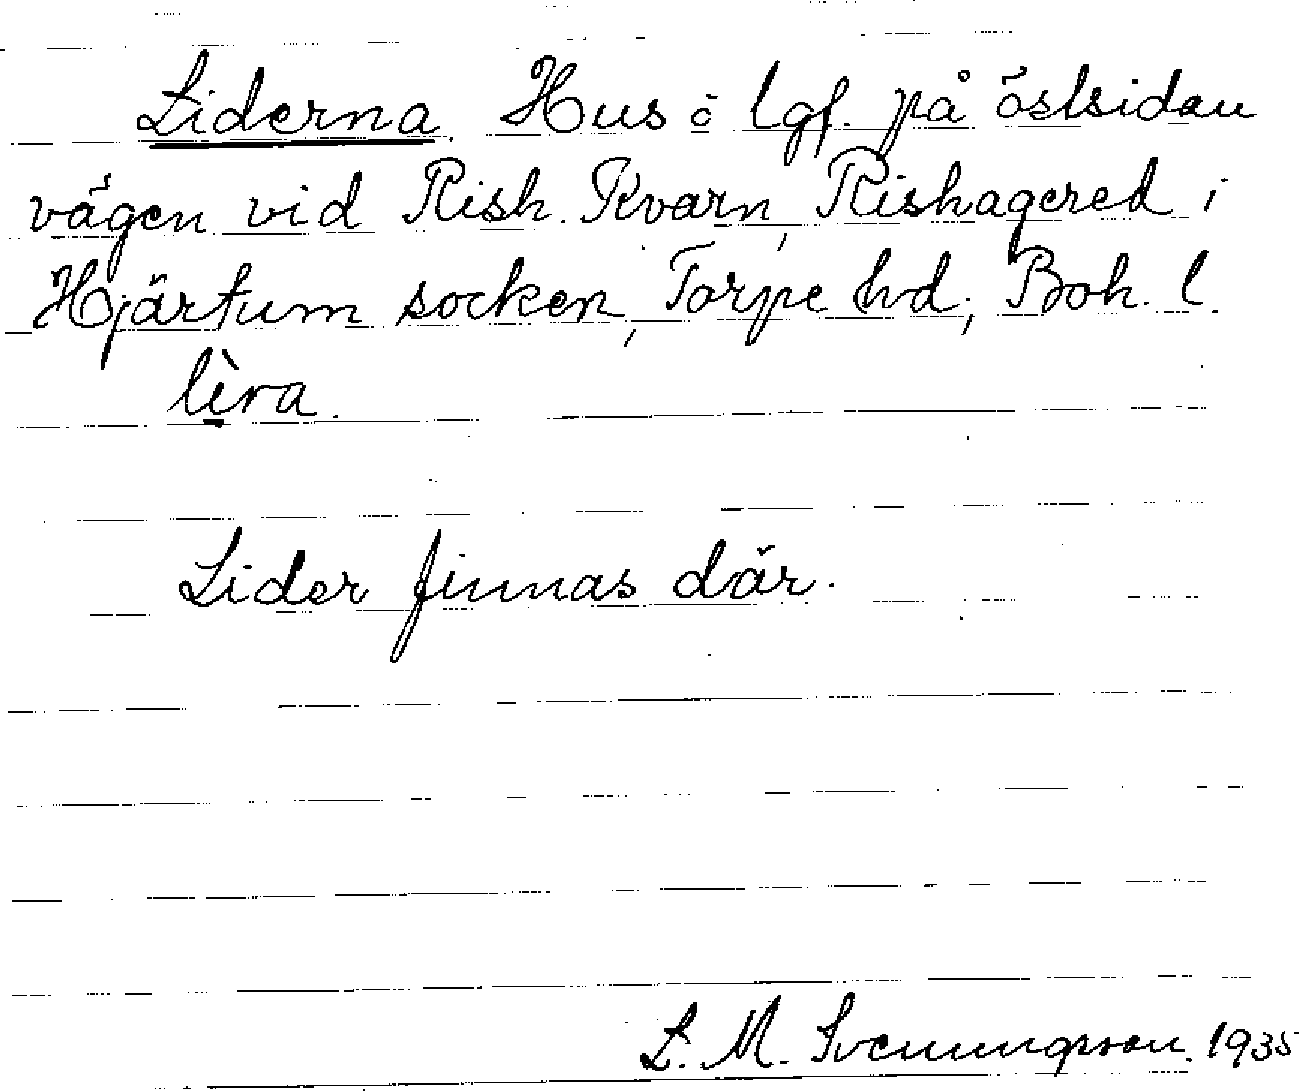 Liderna. Hus o lgf. på östsidan
vägen vid Rish. Kvarn, Rishagered i
Hjärtum socken, Torpe hd, Boh. l.
lèra.
Lider finnas där.
L. M. Svenungsson. 1935